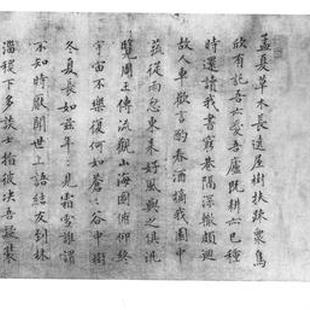 孟夏草木長遶屋樹扶疎衆鳥
欣有託吾亦愛吾廬既耕亦已種
時還讀我書窮巷隔深轍頗迴
故人車歡言酌春酒摘我園中
蔬微雨忽東來好風與之俱汎
覽周王傳流觀山海圖俯仰終
宇宙不樂復何如蒼〻谷中樹
冬夏長如茲年〻見霜雪誰謂
不知時厭聞世上語結友到林
淄稷下多談士指彼決吾疑裝